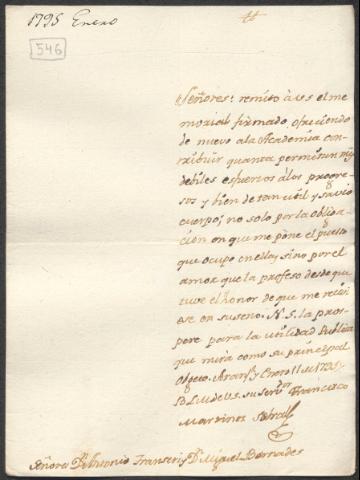 1795 Enero
546
Señores: remito à Us el me
morial firmado, ofreciendo
de nuevo ala Academia con
tribuir quanta permitan mis
debiles esfuerzos alos progre
sos y bien de tan util y savio
cuerpo; no solo por la obliga
cion en que me pone el puesto
que ocupo en ella, sino por el
amor que la profeso desde que
tuve el honor de que me recivi
ese en su seno. N. S. la pros
pere para la utilidad Publica
que mira como su principal
Objeto. Aranj. y Enero 11 de 1795
B. L. M. de Us. su Serv.or Francisco
Martinez Sobral
Señores D. Antonio Franseri y D. Miguel Barnades